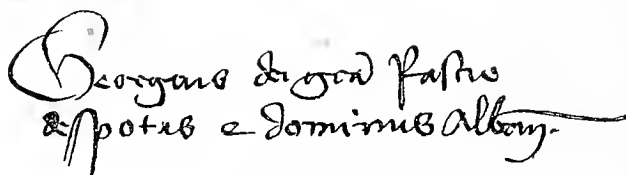 Georgius dei gra Rascie
despotus e dominus Albani.